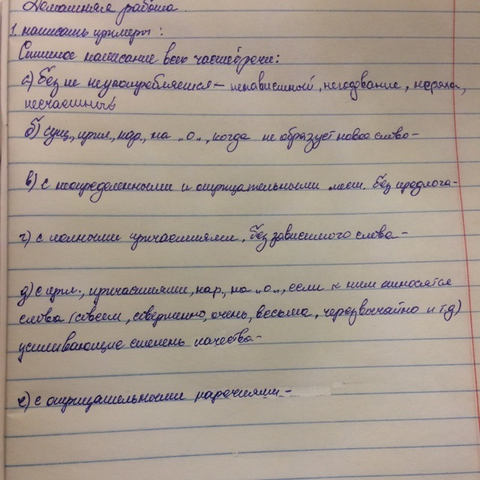 Домашняя работа.
1. написать примеры:
Слитное написание всех частей речи:
а) без не неупотребляется – ненавистный, негодование, неряха,
несчастный
б) сущ., прил., нар., на „о", когда не образует новое слово-
в) с неопределенными и отрицательными мест. без предлога-
г) с полными причастиями, без зависимого слова-
д) с прил., причастиями, нар., на „о", если к ним относятся
слова (совсем, совершенно, очень, весьма, черезвычайно и т.д)
усиливающие степень качества-
е) с отрицательными наречиями-